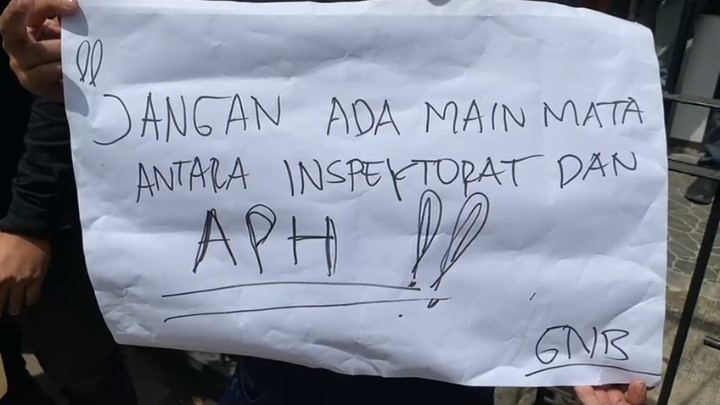 "JANGAN ADA MAIN MATA
ANTARA INSPEKTORAT DAN
APH !!
GNB